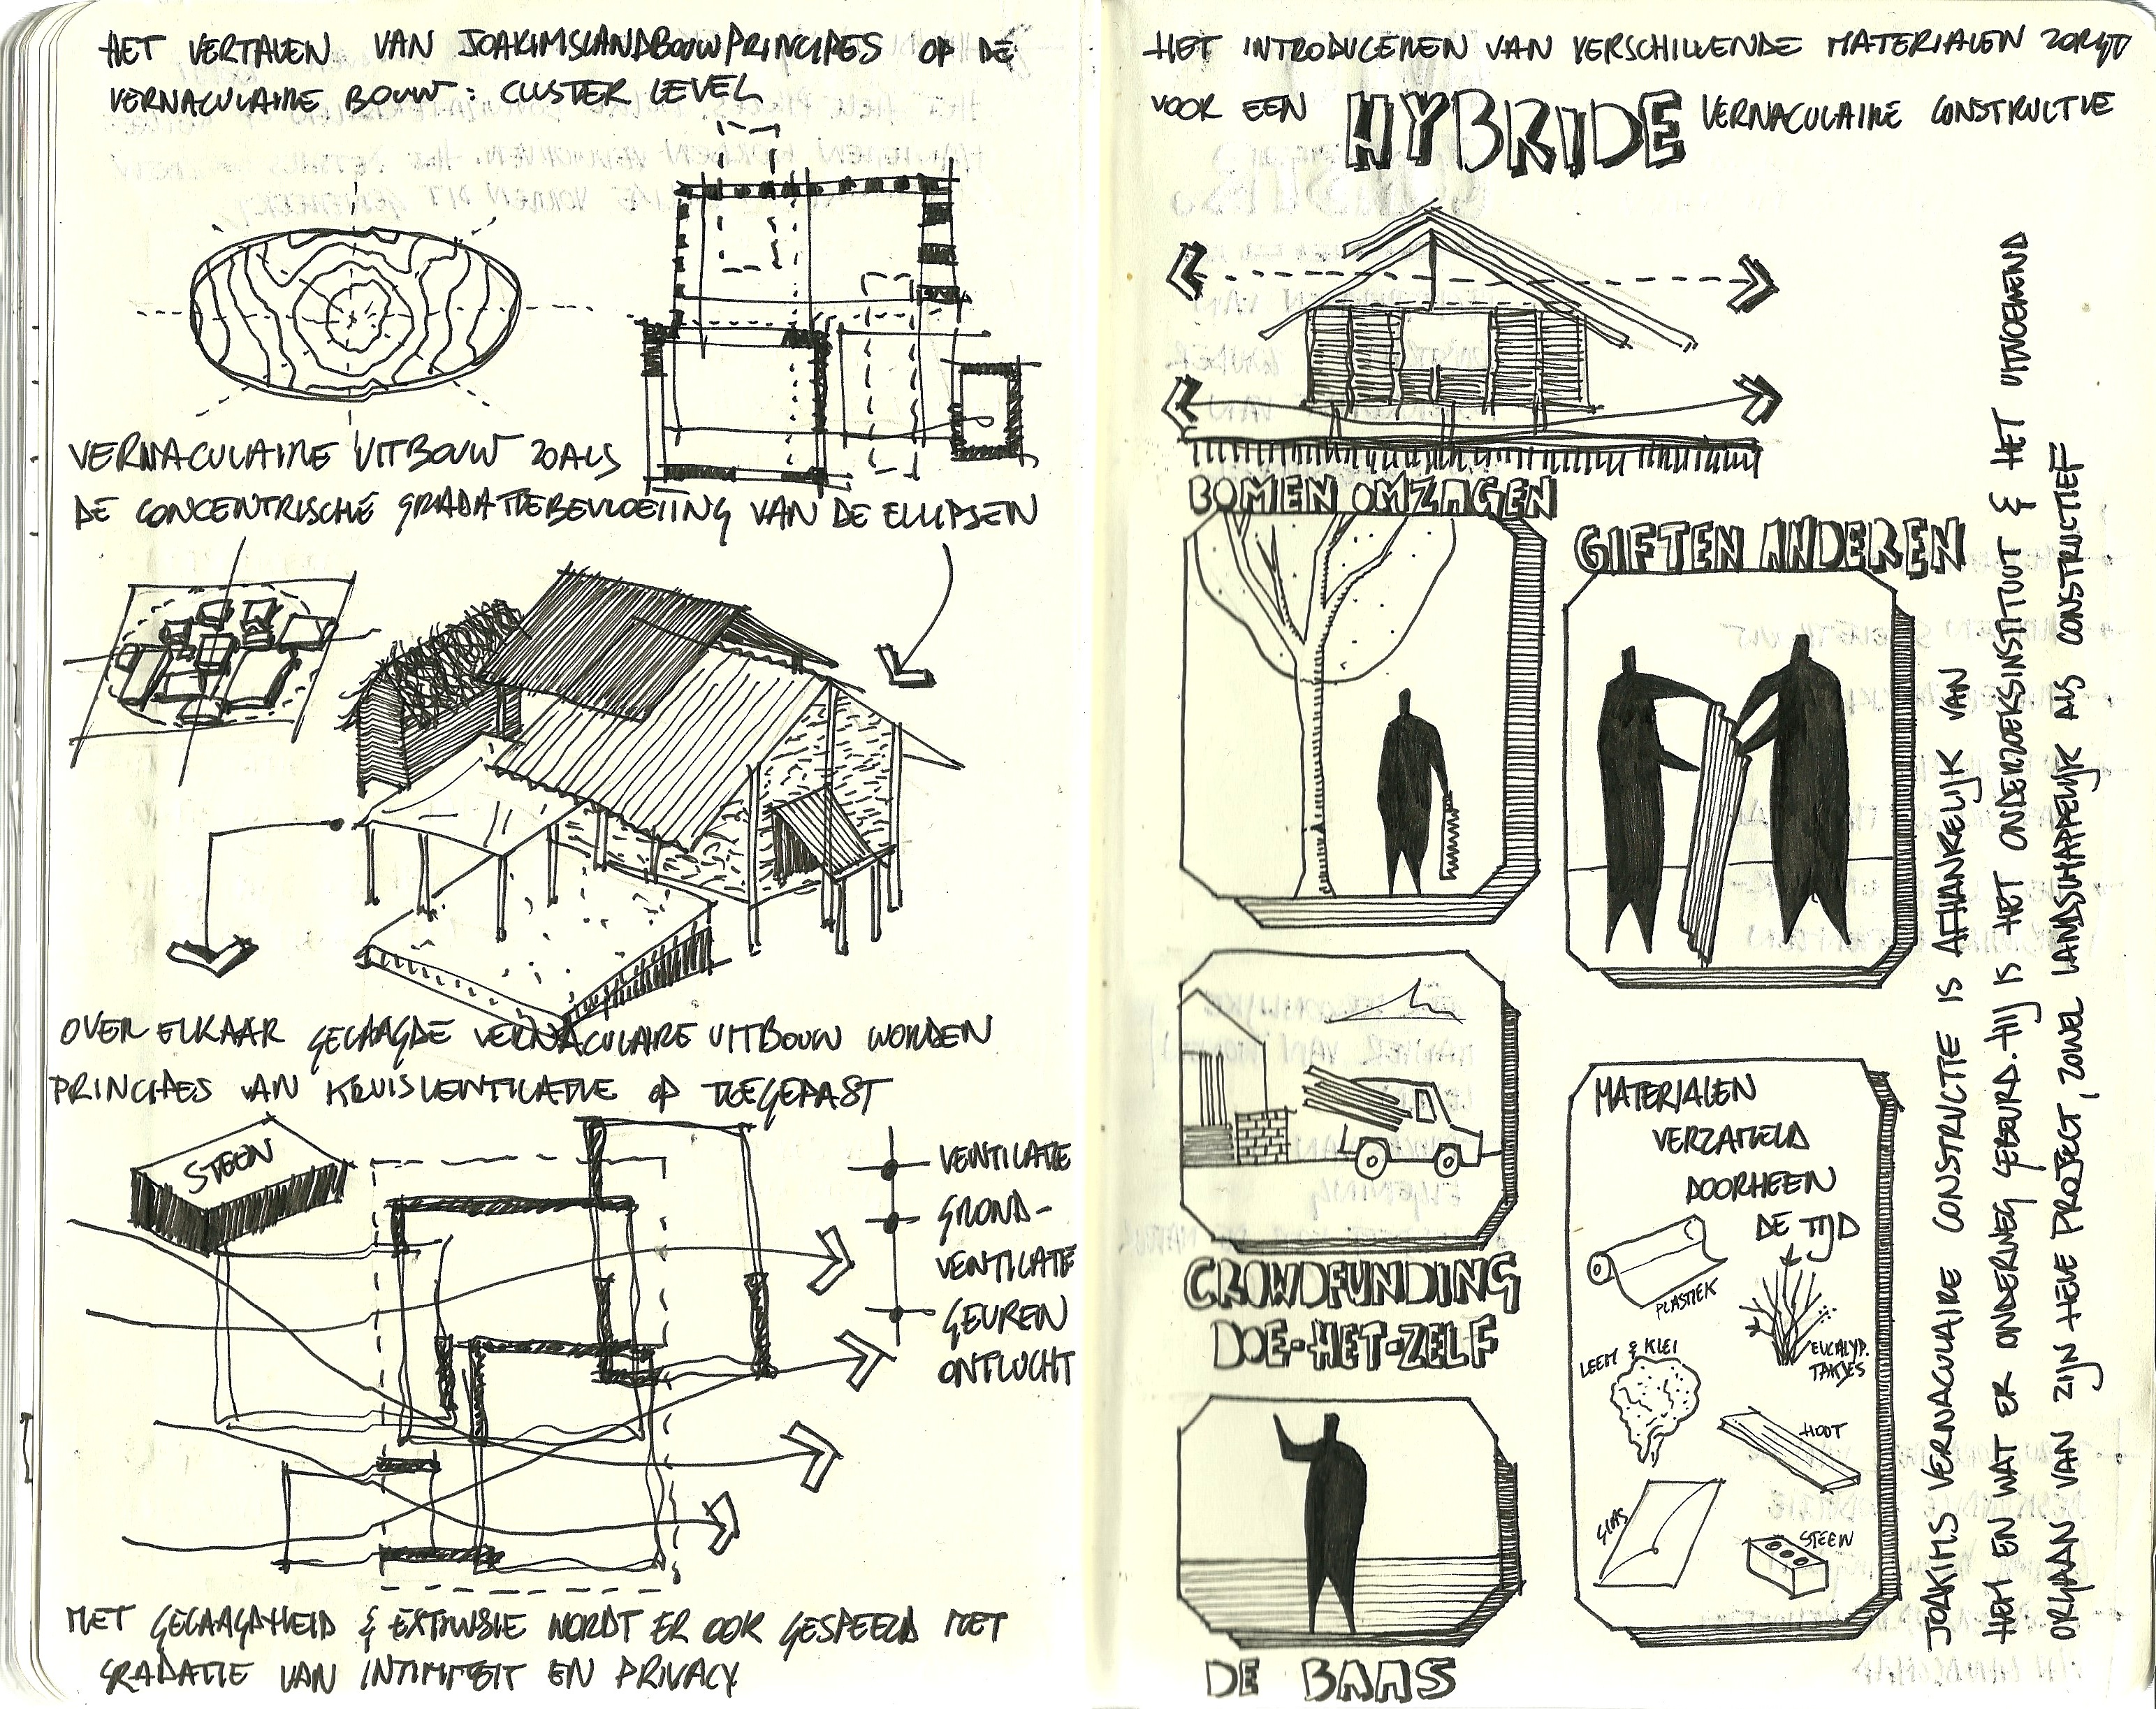 HET VERTALEN VAN JOAKIMSLANDBOUWPRINCIPES OP DE
VERNACULAIRE BOUW: CLUSTER LEVEL
VERNACULAIRE UITBOUW ZOALS
DE CONCENTRISCHE GRADATIEBEVLOEIING VAN DE ELLIPSEN
OVER ELKAAR GELAAGDE VERNACULAIRE UITBOUW WORDEN
PRINCIPES VAN KRUISVENTILATIE OP TOEGEPAST
STEEN
VENTILATIE
GROND-
VENTILATIE
GEUREN
ONTLUCHT
MET GELAAGDHEID & EXTRUSIE WORDT ER OOK GESPEELD MET
GRADATIE VAN INTIMITEIT EN PRIVACY
HET INTRODUCEREN VAN VERSCHILLENDE MATERIALEN ZORGT
VOOR EEN HYBRIDE VERNACULAIRE CONSTRUCTIE
BOMEN OMZAGEN
GIFTEN ANDEREN
CROWDFUNDING
DOE-HET-ZELF
DE BAAS
MATERIALEN
VERZAMELD
DOORHEEN
DE TIJD
PLASTIEK
EUCALYP.
TAKJES
LEEM & KLEI
HOUT
GLAS
STEEN
JOAKIMS VERNACULAIRE CONSTRUCTIE IS AFHANKELIJK VAN
HEM EN WAT ER ONDERWEG GEBEURD. HIJ IS HET ONDERZOEKSINSTITUUT & HET UITVOEREND
ORGAAN VAN ZIJN HEVE PROJECT, ZOWEL LANDSCHAPPELIJK ALS CONSTRUCTIEF